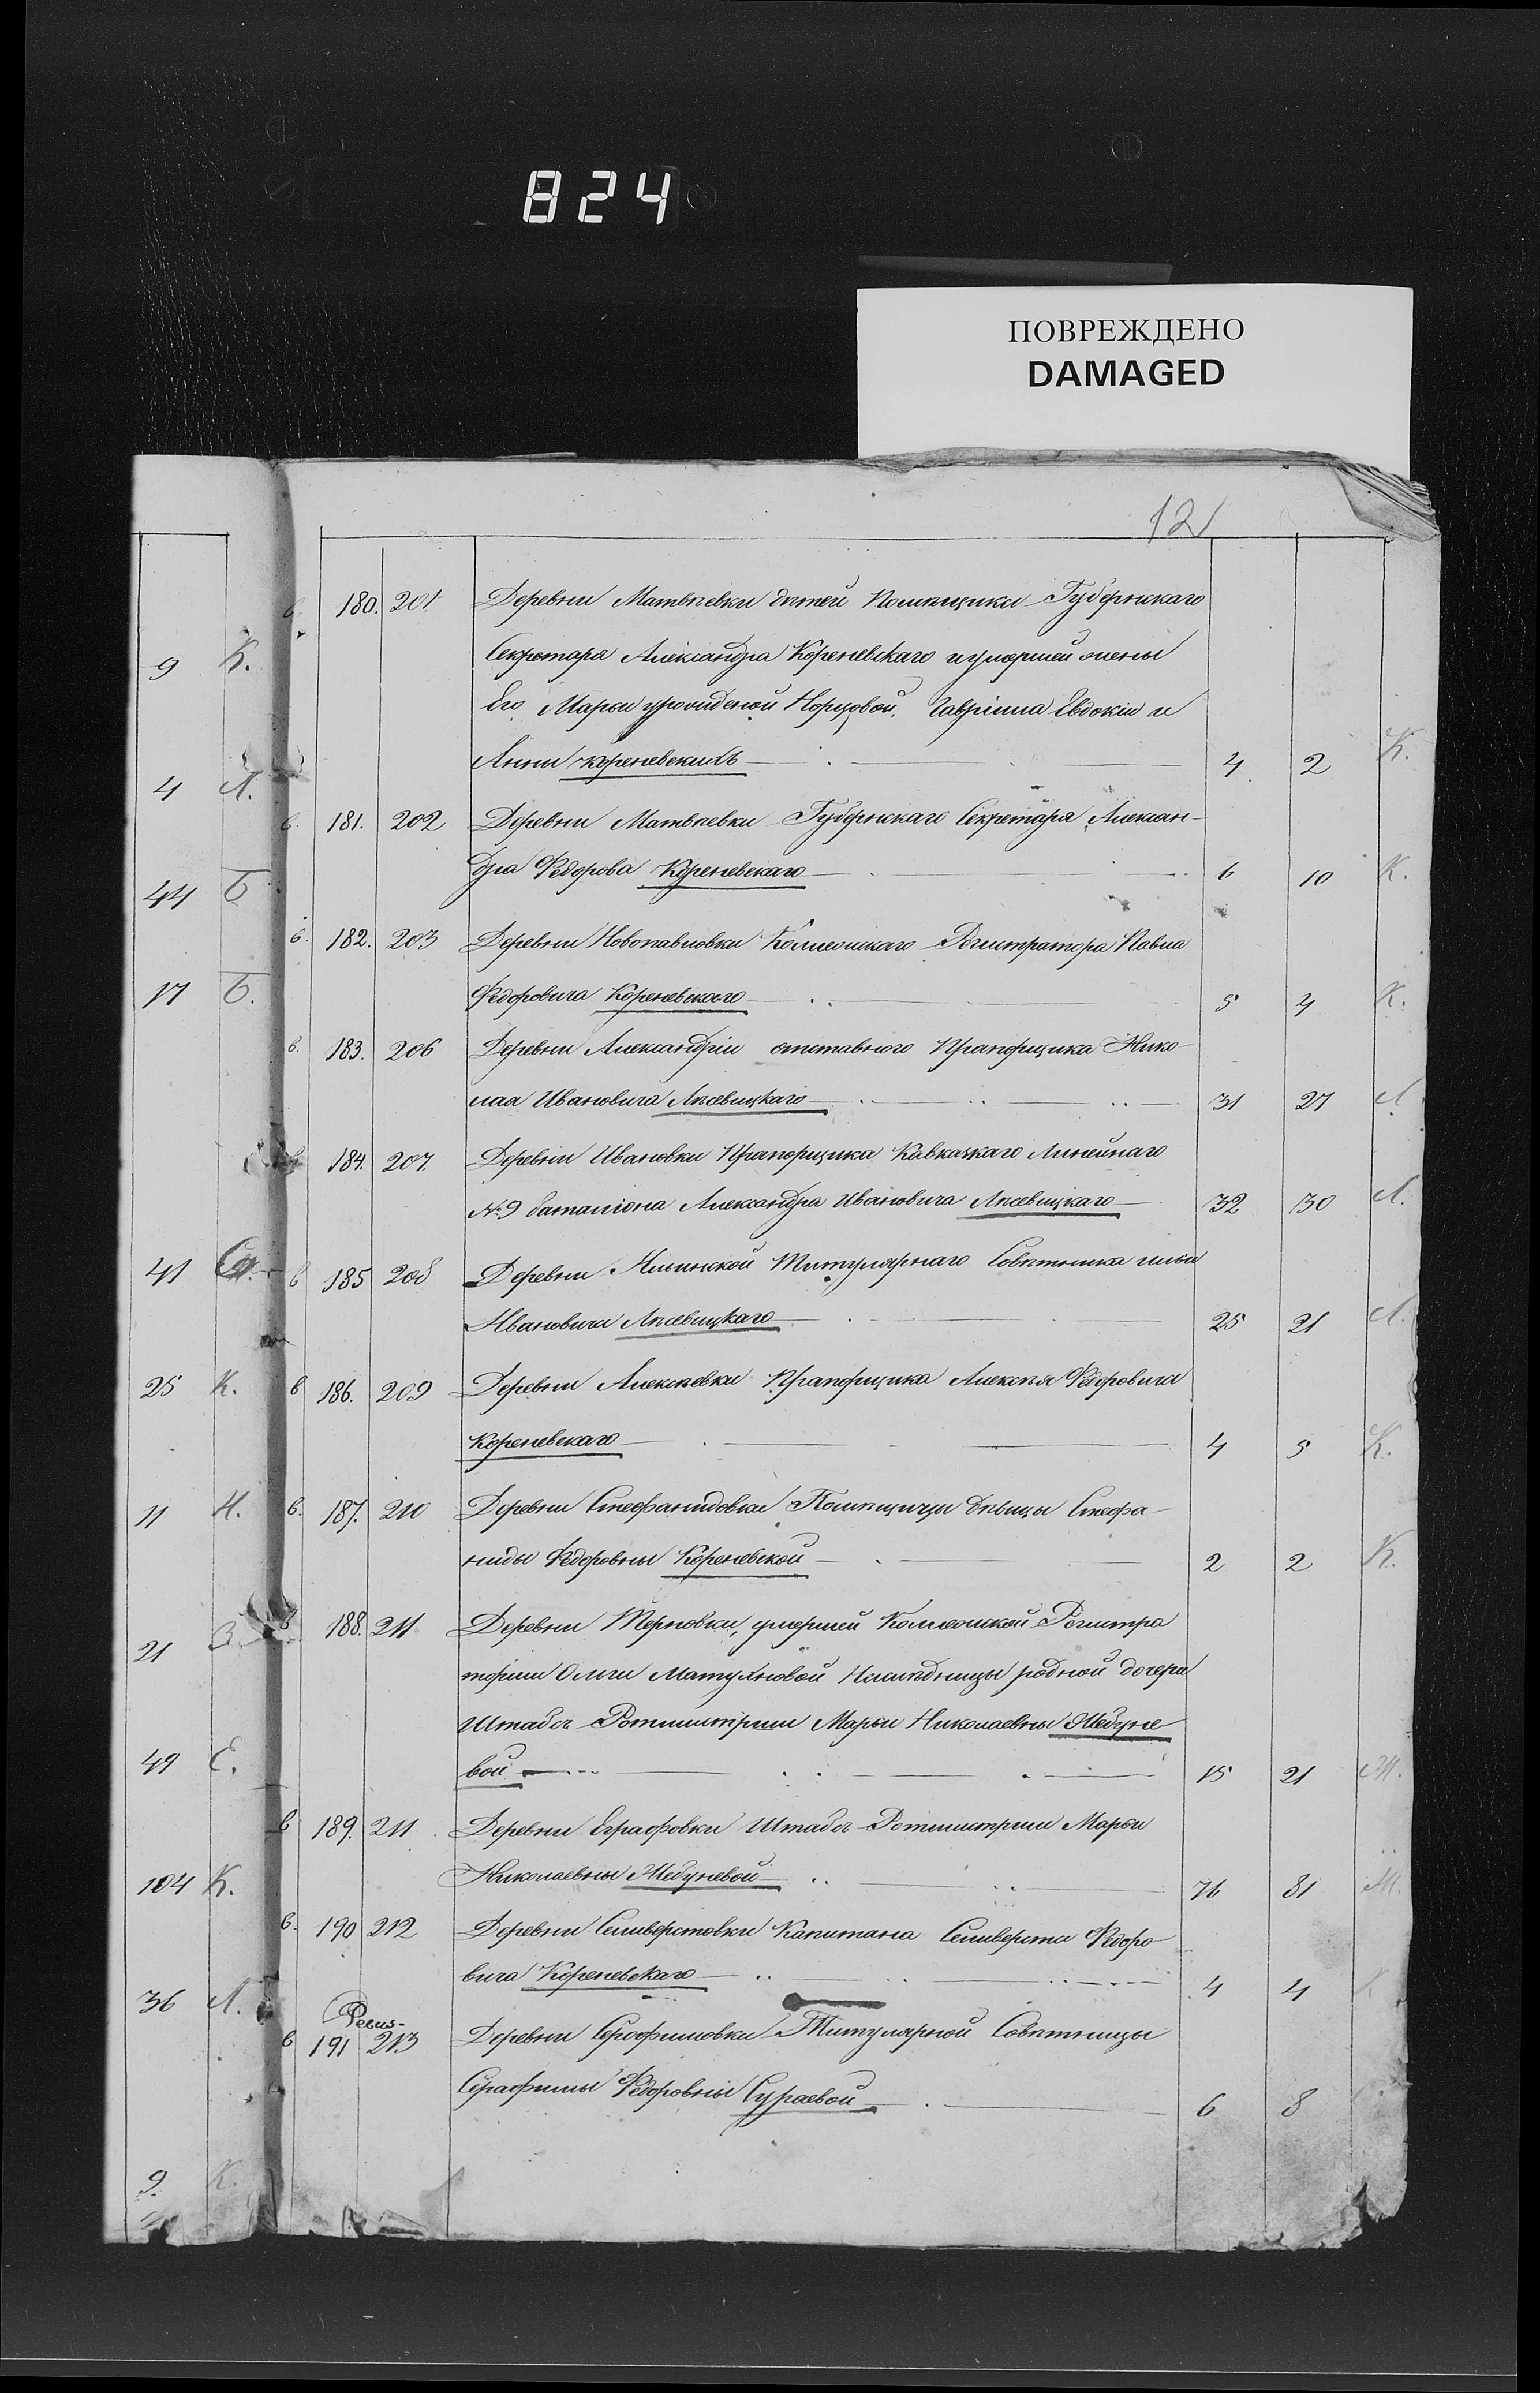 824
ПОВРЕЖДЕНО
DAMAGED
121
в. 180. 201. Деревни Матвѣевки дѣтей Помѣщика Губернскаго
Секретаря Александра Кореневскаго и умершей жены
Его Марьи урожденой Гавріила Евдокіи и
Анны Кореневскихъ 4 2 К.
в. 181. 202 Деревни Матвѣевки Губернскаго Секретаря Алексан-
дра Федорова Кореневскаго 6 10 К.
в. 182. 203 Деревни Новопавловки Коллежскаго Регистратора Павла
Федоровича Кореневскаго 5 4 К.
в. 183. 206 Деревни Александріи отставного Прапорщика Нико-
лая Ивановича Лисевицкаго 31 27 Л.
184. 207. Деревни Ивановки Прапорщика Кавказкаго Линейнаго
№ 9 баталіона Александра Ивановича Лисевицкаго 32 30 Л.
в 185 208 Деревни Ильинской Титулярнаго Совѣтника Ильи
Ивановича Лисевицкаго 25 21 Л.
в 186. 209 Деревни Алексѣевки Прапорщика Алексѣя Федоровича
Кореневскаго 4 5 К.
в. 187. 210 Деревни Стефанидовки Помѣщицы дѣвицы Стефа-
ниды Федоровны Кореневской 2 2 К.
188. 211 Деревни Терновки, умершей Коллежской Регистра
торши Ольги Матухновой Наслѣдницы родной дочери
Штабсъ Ротмистрши Марьи Николаевны Жебуне
вой 15 21 Ж.
в 189. 211 Деревни Еграфовки Штабсъ-Ротмистрши Марьи
Николаевны Жебуневой 76 81 Ж.
в. 190 212 Деревни Селиверстовки Капитана Селиверста Федоро
вича Кореневскаго 4 4 К
в 191 213 Деревни Серафимовки Титулярной Совѣтницы
Серафимы Федоровны Сураевой 6 8
9 К.
4 Л.
44 Б
17 Б.
41
25 К.
11 Н.
21 З.
49 Е.
104 К.
36 Л.
9. К.